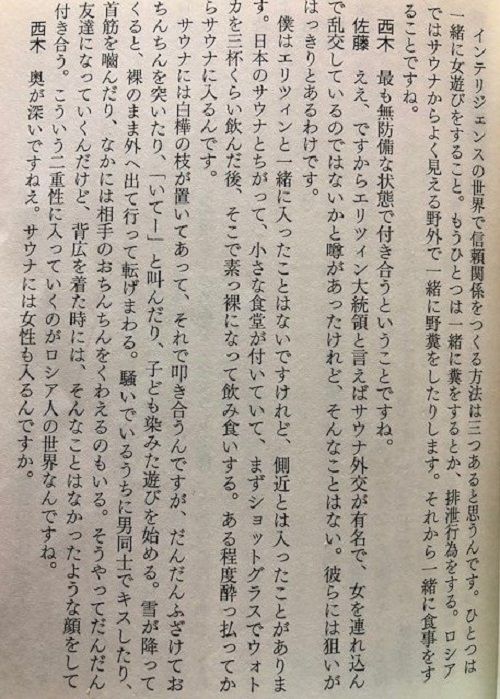 インテリジェンスの世界で信頼関係をつくる方法は三つあると思うんです。ひとつは
一緒に女遊びをすること。もうひとつは一緒に糞をするとか、排泄行為をする。ロシア
ではサウナからよく見える野外で一緒に野糞をしたりします。それから一緒に食事をす
ることですね。
西木　最も無防備な状態で付き合うということですね。
佐藤　ええ、ですからエリツィン大統領と言えばサウナ外交が有名で、女を連れ込ん
で乱交しているのではないかと噂があったけれど、そんなことはない。彼らには狙いが
はっきりとあるわけです。
僕はエリツィンと一緒に入ったことはないですけれど、側近とは入ったことがありま
す。日本のサウナとちがって、小さな食堂が付いていて、まずショットグラスでウォト
カを三杯くらい飲んだ後、そこで素っ裸になって飲み食いする。ある程度酔っ払ってか
らサウナに入るんです。
サウナには白樺の枝が置いてあって、それで叩き合うんですが、だんだんふざけてお
ちんちんを突いたり、「いてー」と叫んだり、子ども染みた遊びを始める。雪が降って
くると、裸のまま外へ出て行って転げまわる。騒いでいるうちに男同士でキスしたり、
首筋を嚙んだり、なかには相手のおちんちんをくわえるのもいる。そうやってだんだん
友達になっていくんだけど、背広を着た時には　そんなことはなかったような顔をして
付き合う。こういう二重性に入っていくのがロシア人の世界なんですね。
西木　奥が深いですねえ。サウナには女性も入るんですか。